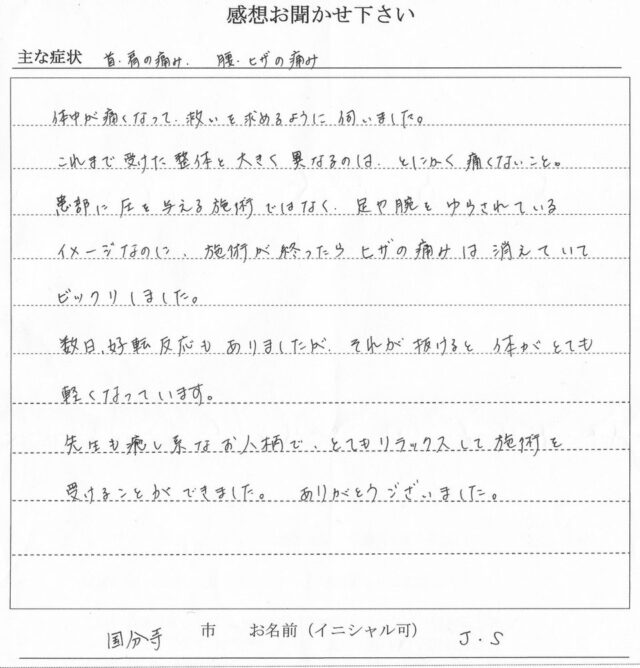 感想お聞かせ下さい
主な症状 首・肩の痛み. 腰・ヒザの痛み
体中が痛くなって、救いを求めるように伺いました。
これまで受けた整体と大きく異なるのは、とにかく痛くないこと。
患部に圧を与える施術ではなく、足や腕をゆらされている
イメージなのに、施術が終ったらヒザの痛みは消えていて
ビックリしました。
数日、好転反応もありましたが、それが抜けると体がとても
軽くなっています。
先生も癒し系なお人柄で、とてもリラックスして施術を
受けることができました。 ありがとうございました。
国分寺 市 お名前（イニシャル可） J.S